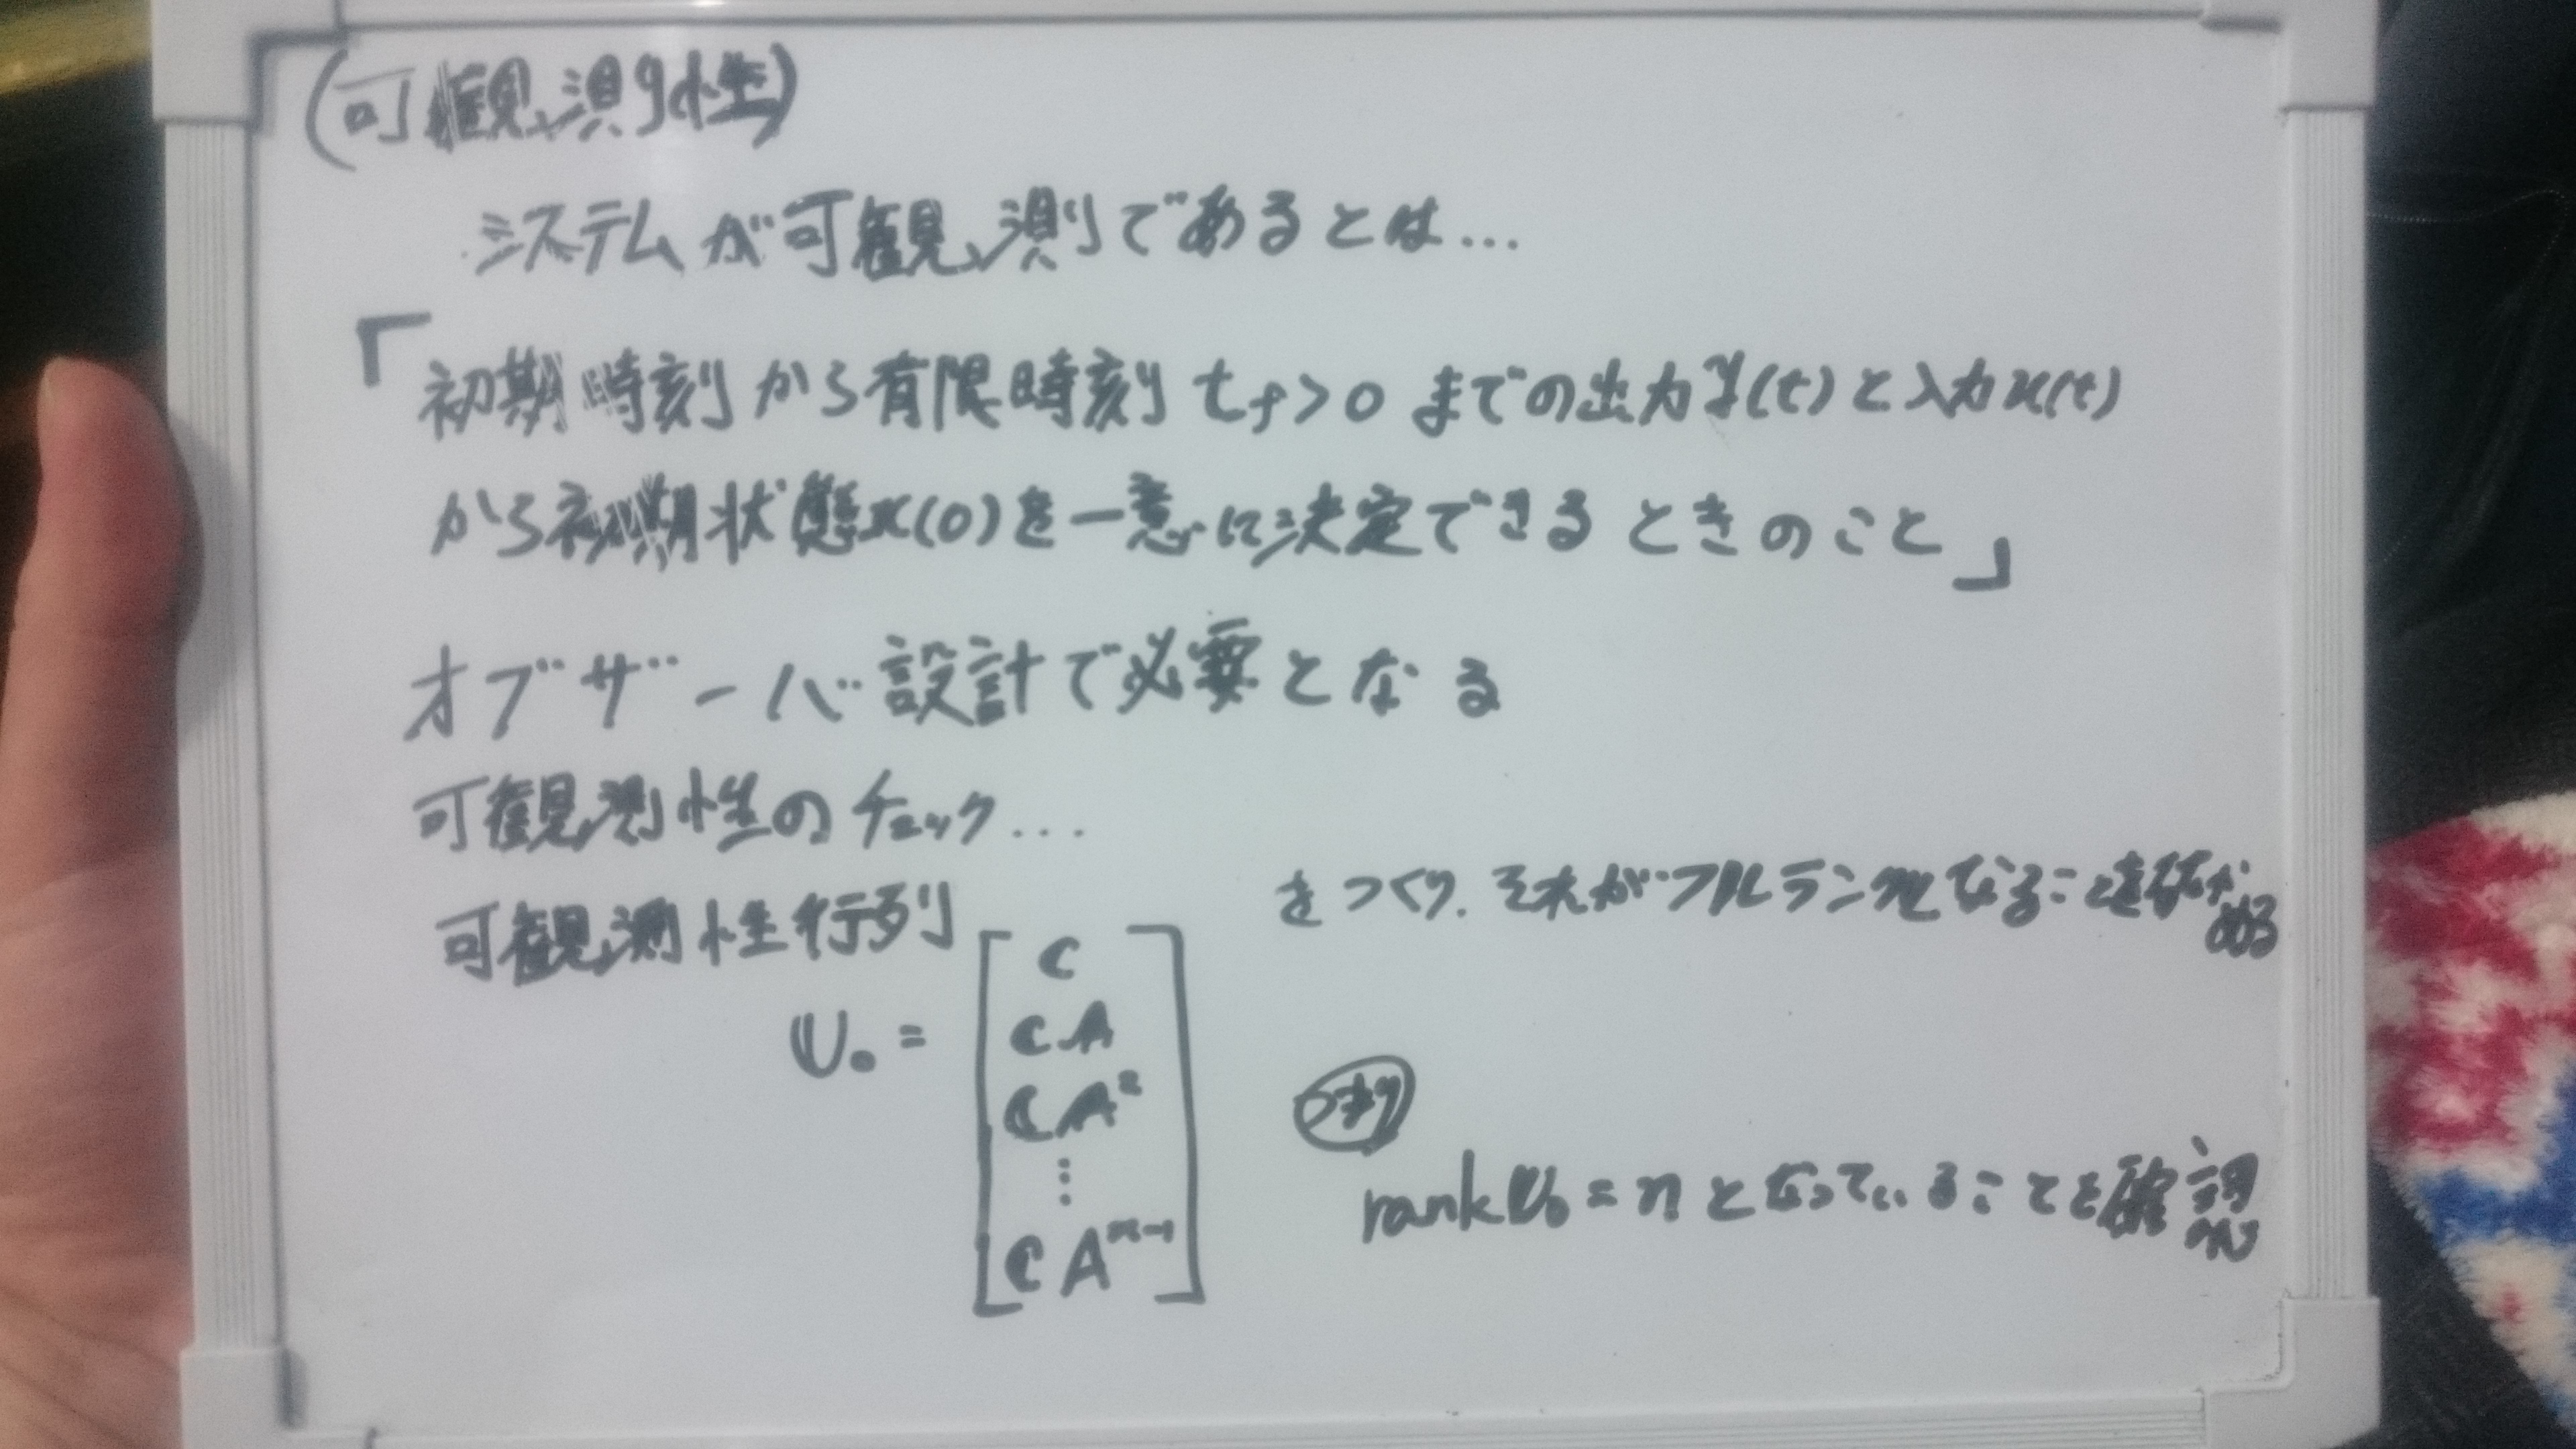 (可観測性)
システムが可観測であるとは...
「初期時刻から有限時刻 tf>0 までの出力y(t)と入力u(t)
から初期状態x(0)を一意に決定できるときのこと」
オブザーバ設計で必要となる
可観測性のチェック...
可観測性行列
U₀ = [ C
CA
CA²
⋮
CAⁿ⁻¹ ]
をつくり、それがフルランクになることを確かめる
つまり
rank U₀ = n となっていることを確認